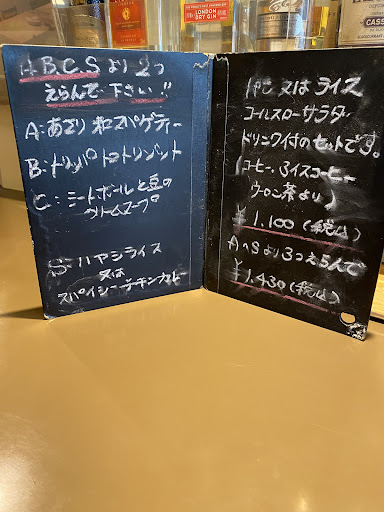 LONDON
DRY GIN
A B C S より2つ
えらんで下さい!!
A:あさり和スパゲティー
B:トリッパトマトリゾット
C:ミートボールと豆の
クリームスープ
S:ハヤシライス
又は
スパイシーチキンカレー
パン又はライス
コールスローサラダ
ドリンク付のセットです。
(コーヒー、アイスコーヒー
ウーロン茶より)
¥1.100(税込)
A〜Sより3つえらんで
¥1.430(税込)